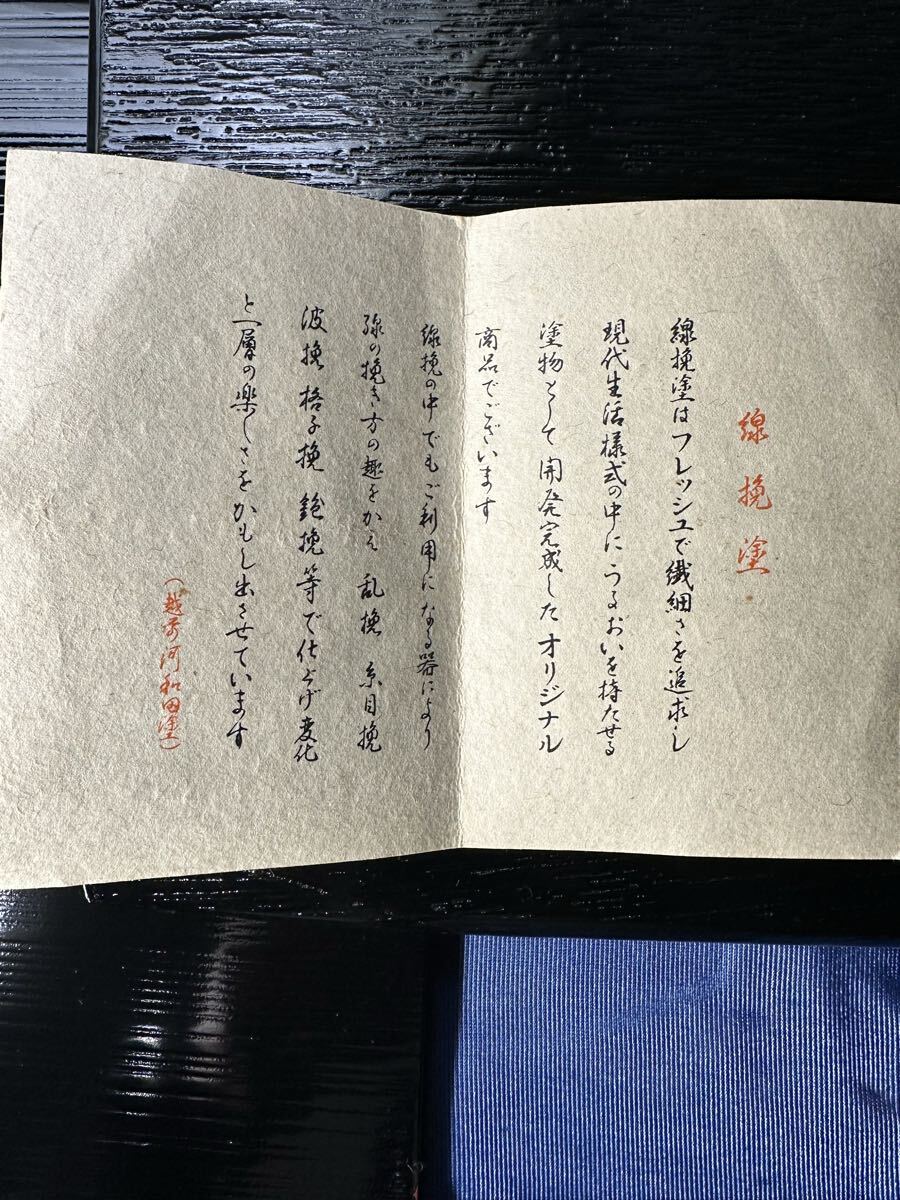 線挽塗
線挽塗はフレッシュで繊細さを追求し
現代生活様式の中にうるおいを持たせる
塗物として開発完成したオリジナル
商品でございます
線挽の中でもご利用になる器により
線の挽き方の趣をかえ 乱挽 糸目挽
波挽 格子挽 鉋挽等で仕上げ変化
と一層の楽しさをかもし出させています
(越前河和田塗)